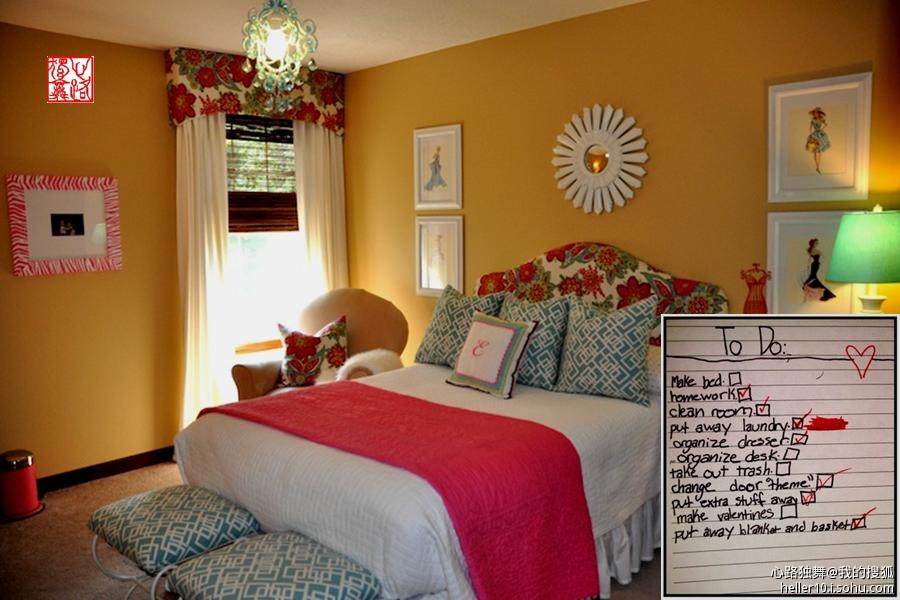 E
To Do:
Make bed.
homework
clean room.
put away laundry.
organize dresser.
organize desk.
take out trash.
change door "theme"
put extra stuff away
make valentines
put away blanket and basket
心路独舞@我的搜狐
heller10.i.sohu.com